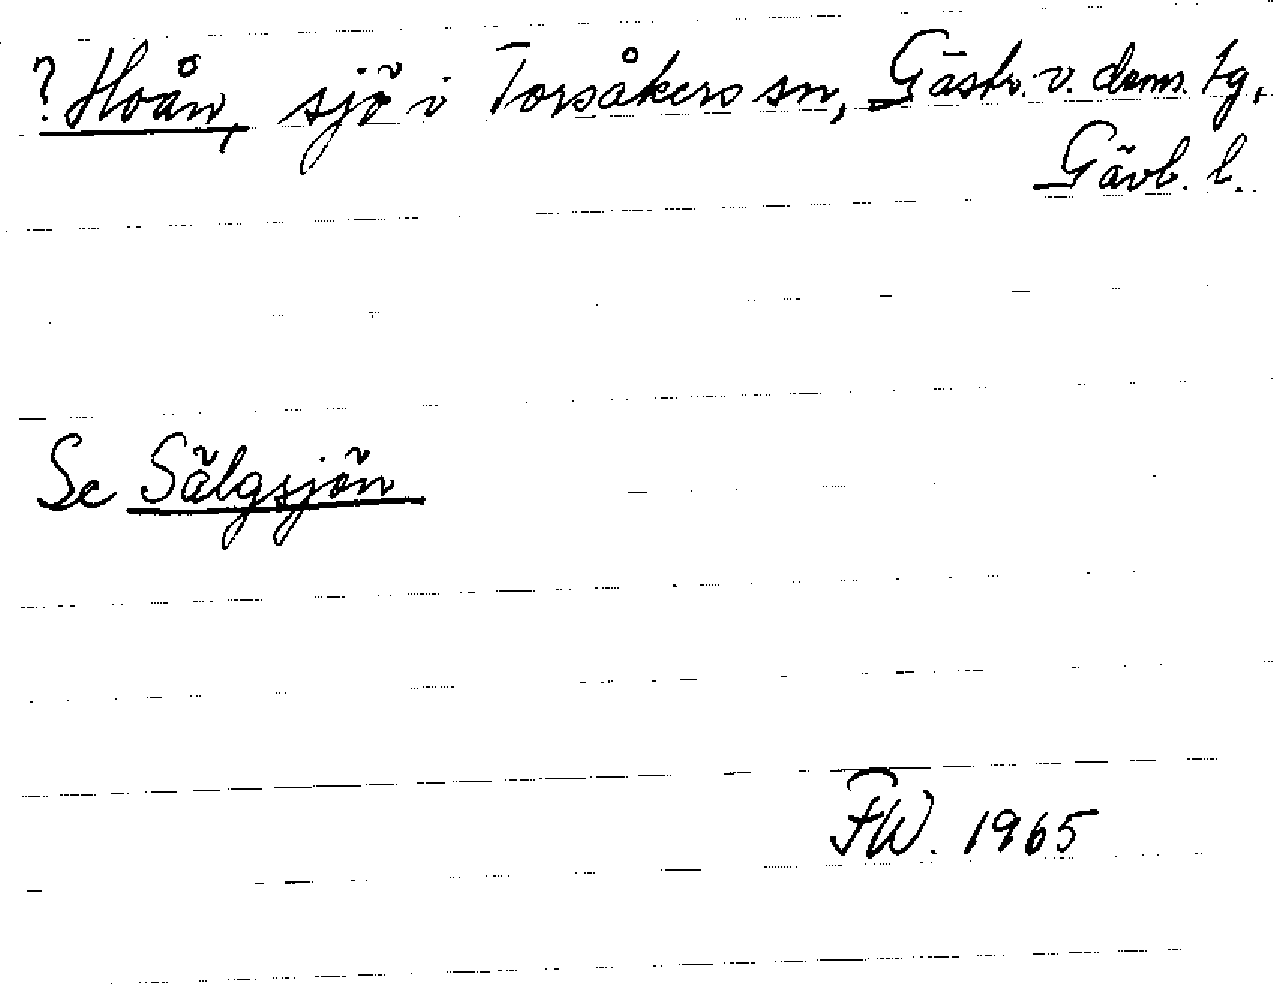 ?Hoån, sjö i Torsåkers sn, Gästr. v. doms. tg,
Gävl. l.
Se Sälgsjön
FW. 1965